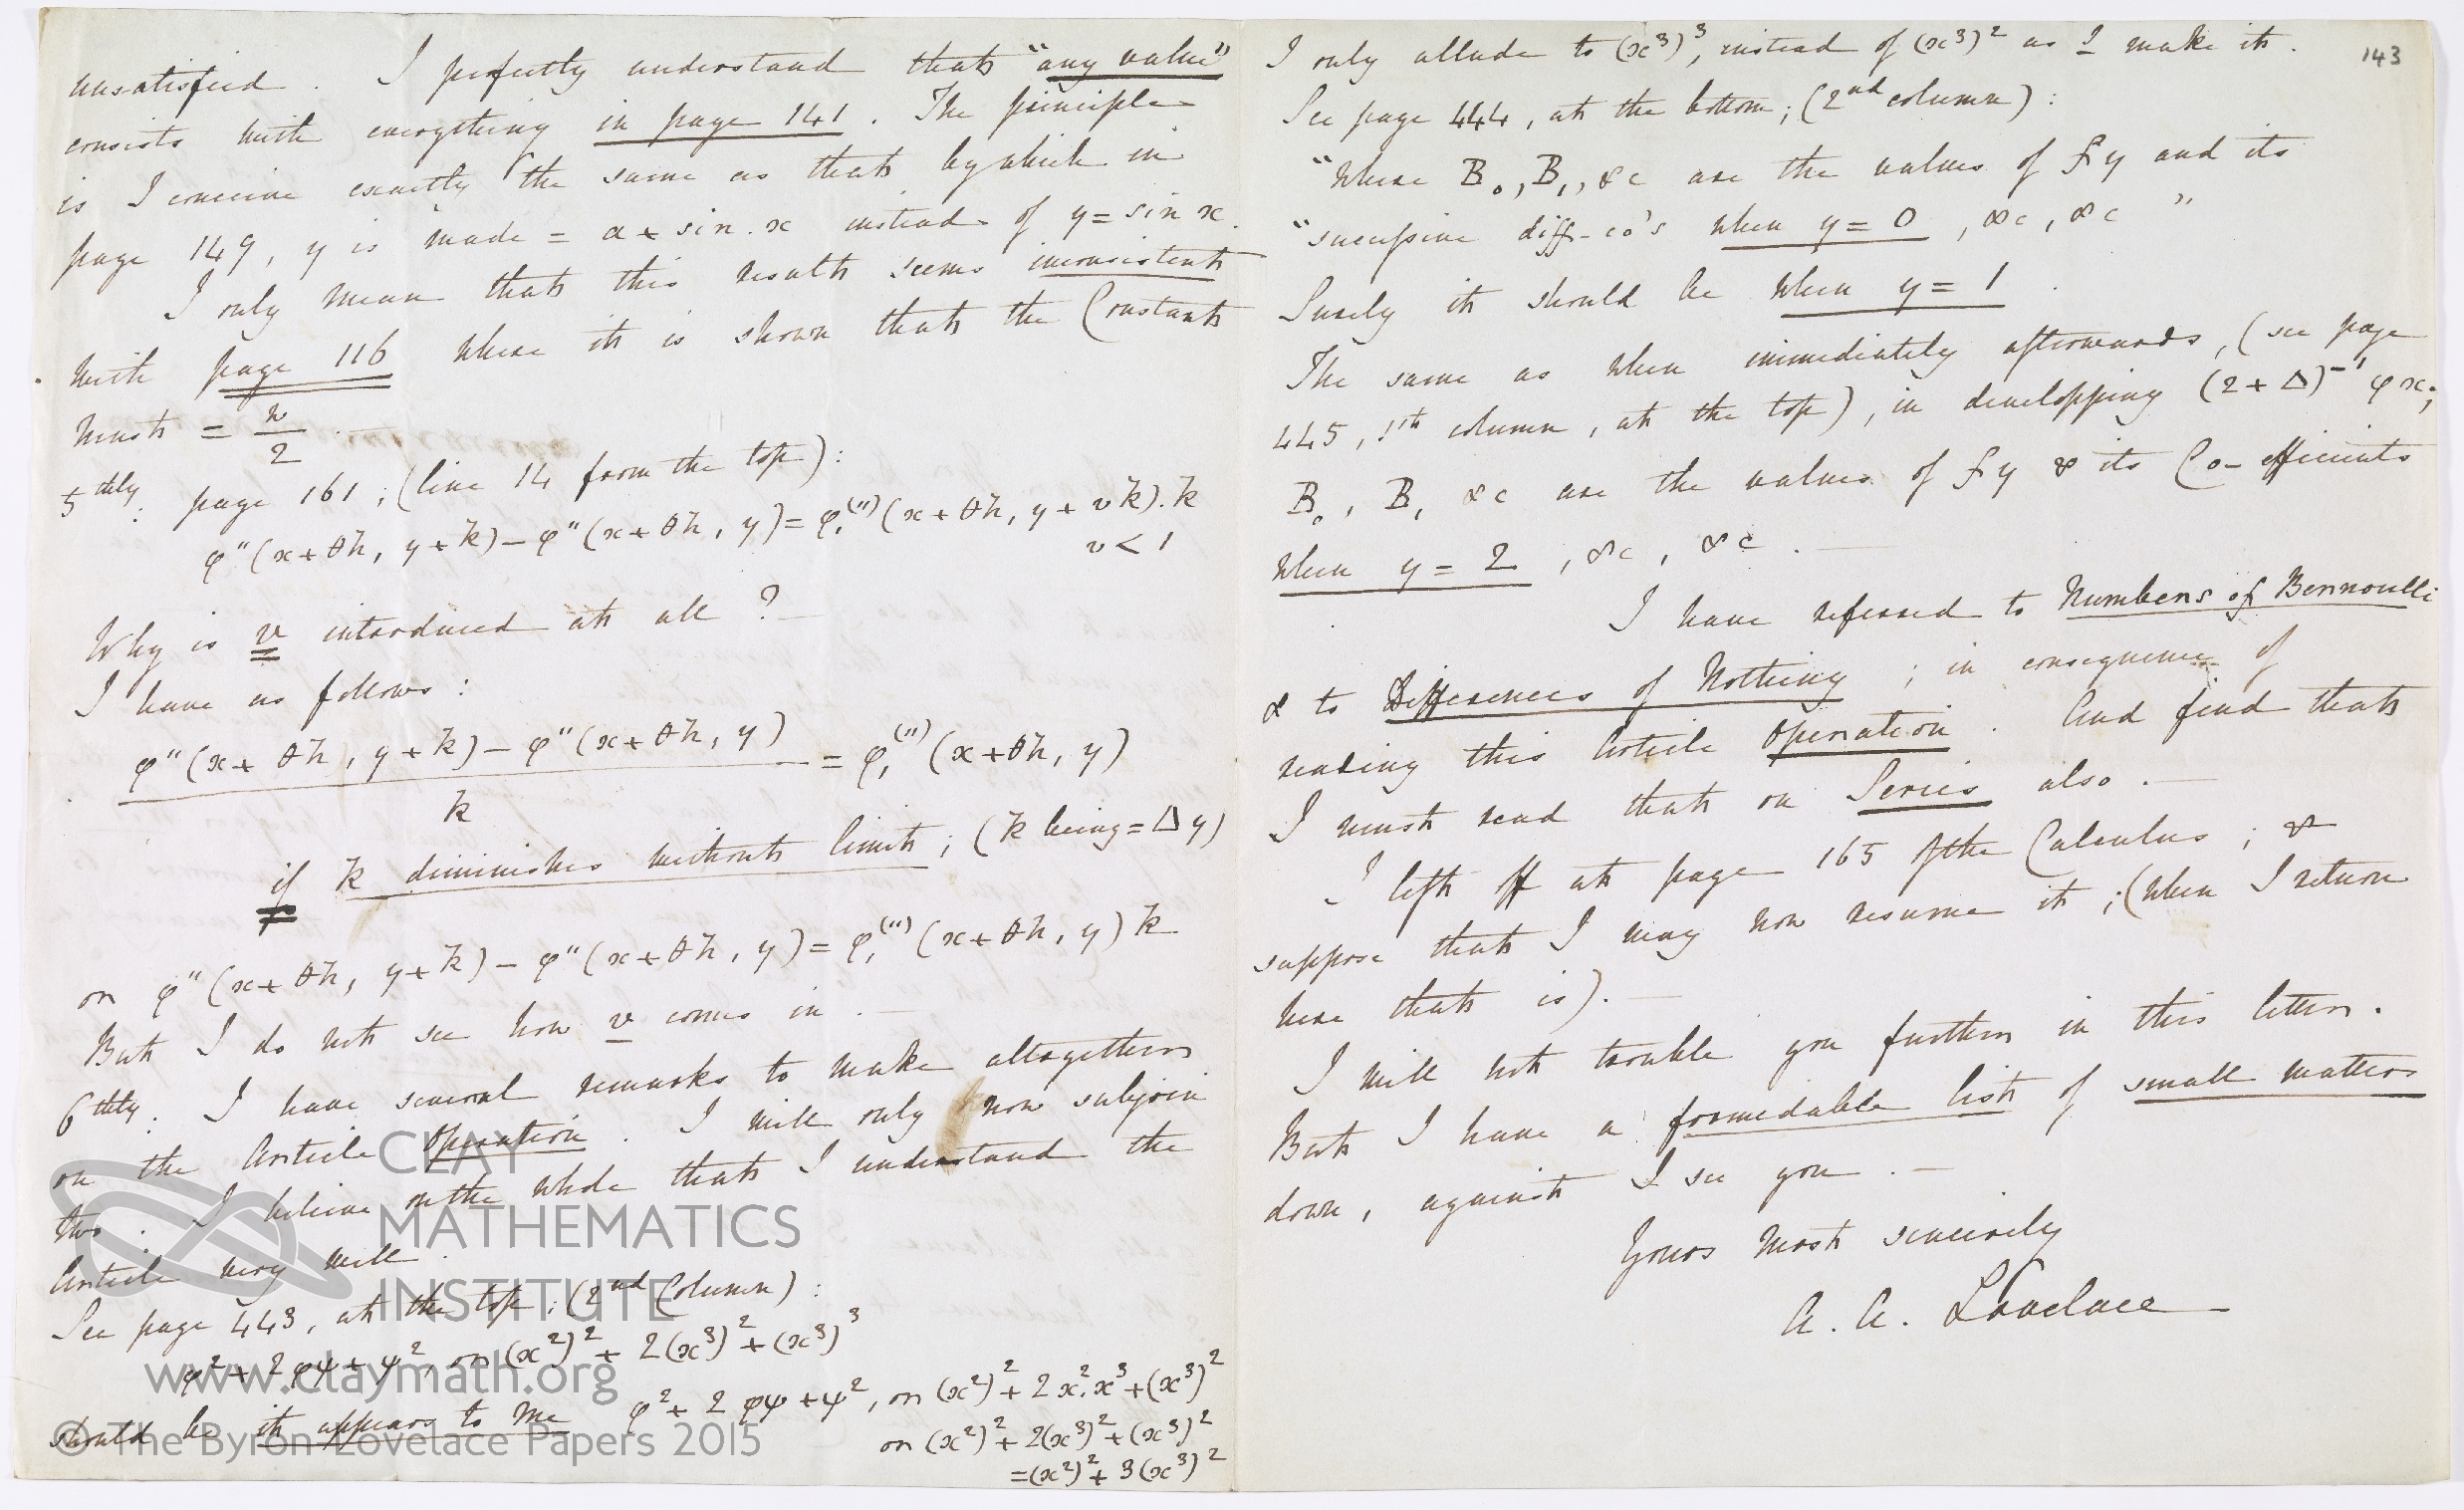 unsatisfied. I perfectly understand that "any value"
consists with everything in page 141. The principle
is I conceive exactly the same as that by which in
page 149, y is made = a + sin. x instead of y = sin x.
I only mean that this result seems inconsistent
with page 116 where it is shown that the Constant
must = n/2. —
5thly: page 161; (line 14 from the top):
φ″(x+θh, y+k) − φ″(x+θh, y) = φ,(″)(x+θh, y+vk).k
v < 1
Why is v introduced at all? —
I have as follows:
φ″(x+θh, y+k) − φ″(x+θh, y) / k = φ,(″)(x+θh, y)
if k diminishes without limit; (k being = Δy)
or φ″(x+θh, y+k) − φ″(x+θh, y) = φ,(″)(x+θh, y) k
But I do not see how v comes in. —
6thly: I have several remarks to make altogether
on the Article Operation. I will only now subjoin
two. I believe on the whole that I understand the
Article very well.
See page 443, at the top; (2nd Column):
φ² + 2φψ + ψ², or (x²)² + 2(x³)² + (x³)³
should be it appears to me φ² + 2φψ + ψ², or (x²)² + 2x².x³ + (x³)²
or (x²)² + 2(x³)² + (x³)²
= (x²)² + 3(x³)²
CLAY
MATHEMATICS
INSTITUTE
www.claymath.org
© The Byron-Lovelace Papers 2015
143
I only allude to (x³)³, instead of (x³)² as I make it.
See page 444, at the bottom; (2nd column):
"where B₀, B₁, &c are the values of fy and its
"successive diff-co's when y = 0, &c, &c"
Surely it should be when y = 1.
The same as when immediately afterwards, (see page
445, 1st column, at the top), in developping (2 + Δ)⁻¹ φx;
B₀, B₁ &c are the values of fy & its Co-efficients
when y = 2, &c, &c. —
I have referred to Numbers of Bernoulli
& to Differences of Nothing; in consequence of
reading this Article Operation. And find that
I must read that on Series also. —
I left off at page 165 of the Calculus; &
suppose that I may now resume it; (when I return
here that is). —
I will not trouble you further in this letter.
But I have a formidable list of small matters
down, against I see you. —
Yours most sincerely
A. A. Lovelace